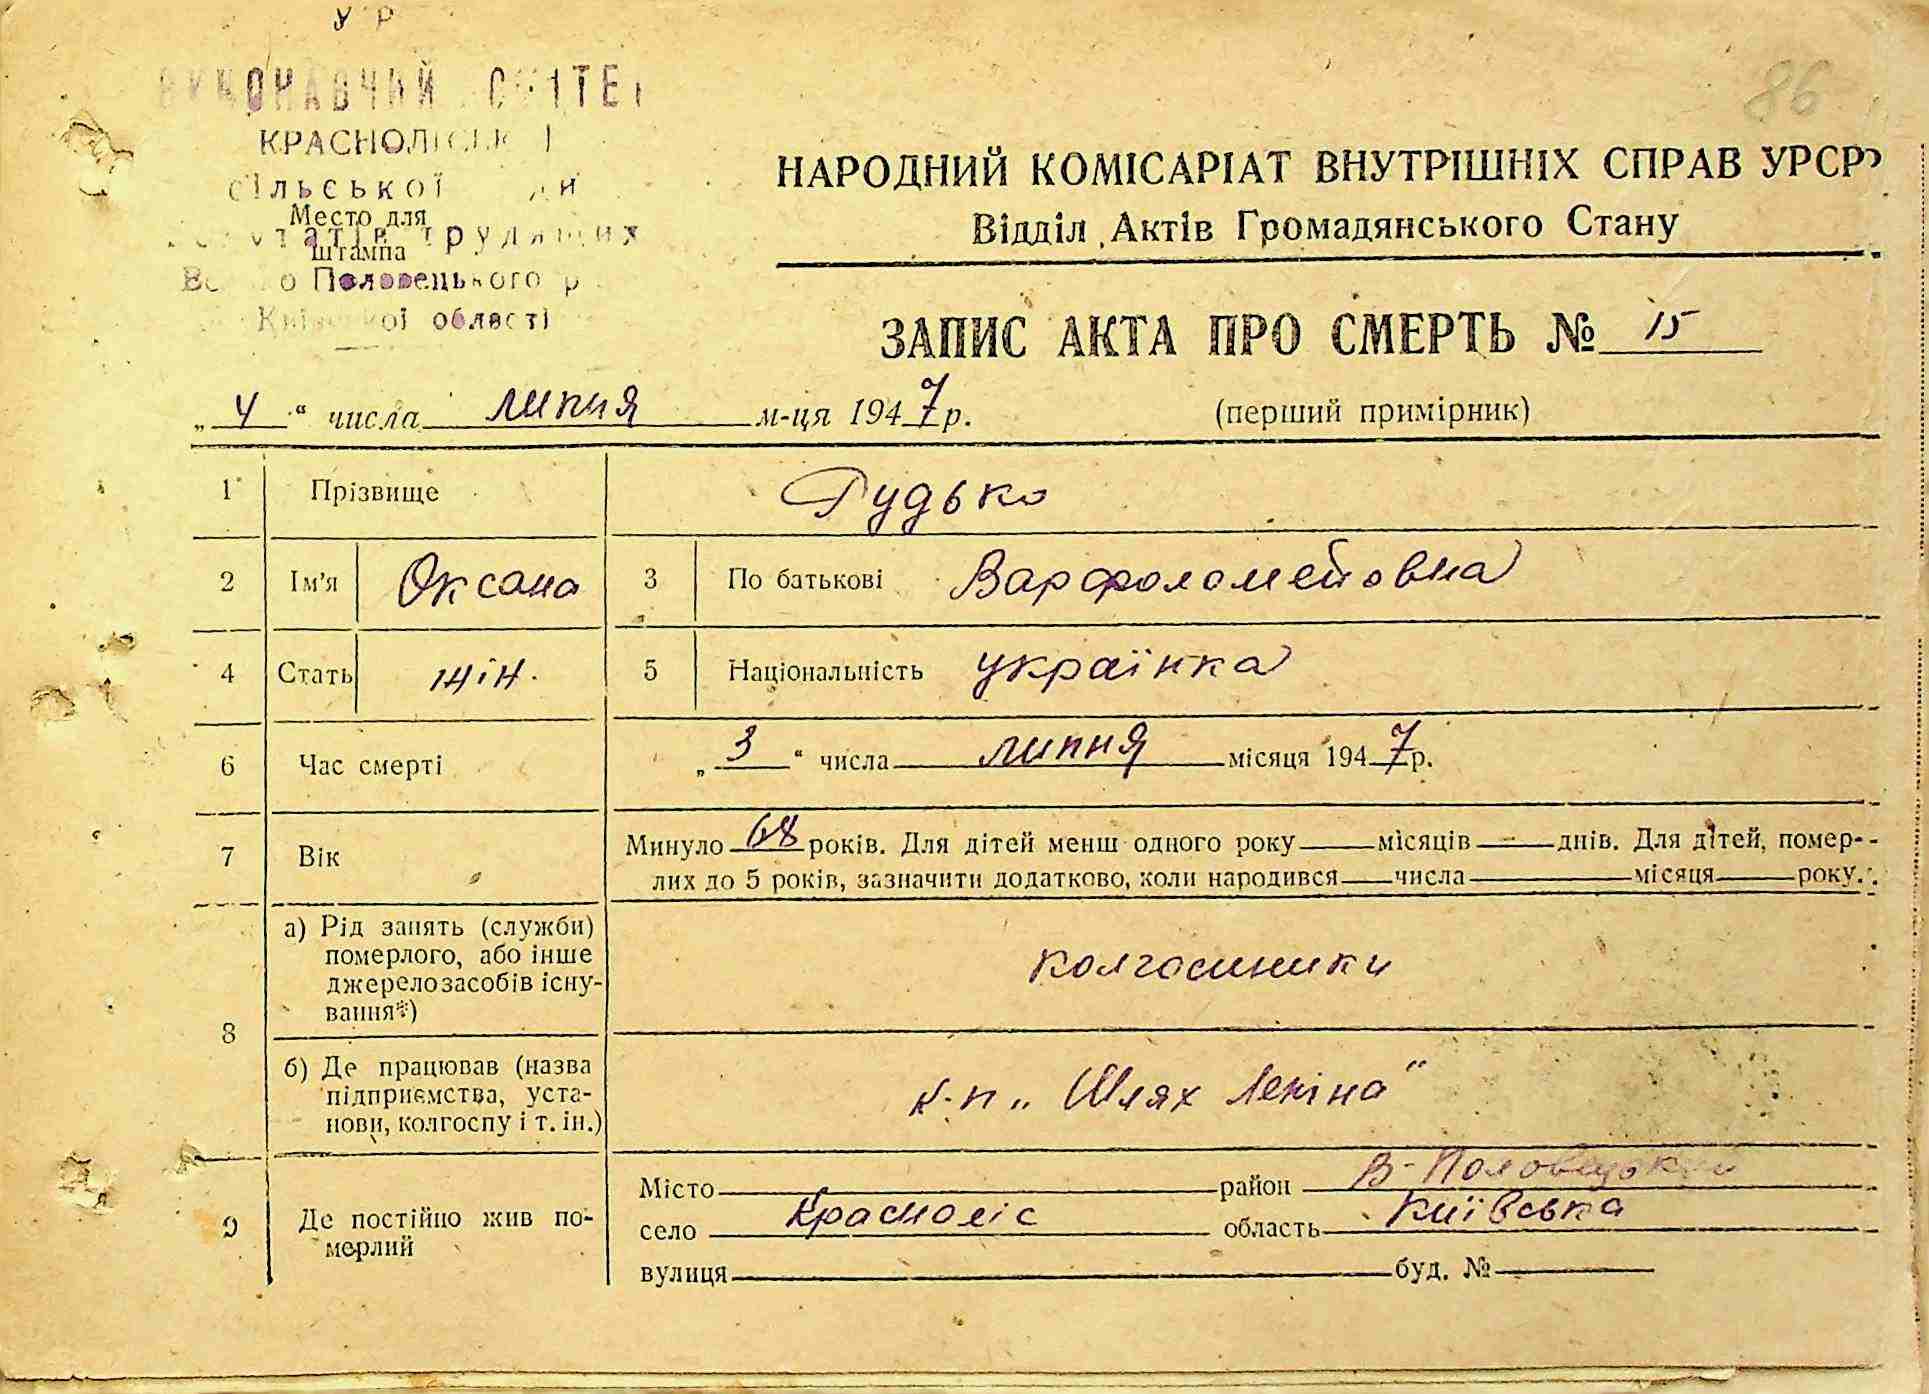 У Р
ВИКОНАВЧИЙ
КРАСНОЛІСЬКОЇ
сільської
Место для
штампа
трудящих
Половецького р
Київської області
86
НАРОДНИЙ КОМІСАРІАТ ВНУТРІШНІХ СПРАВ УРСР
Відділ Актів Громадянського Стану
ЗАПИС АКТА ПРО СМЕРТЬ № 15
„4“ числа липня м-ця 1947 р.
(перший примірник)
1 Прізвище Гудько
2 Ім'я Оксана 3 По батькові Варфоломейовна
4 Стать жін. 5 Національність українка
6 Час смерті „3“ числа липня місяця 1947 р.
7 Вік Минуло 68 років. Для дітей менш одного року місяців днів. Для дітей, помер-
лих до 5 років, зазначити додатково, коли народився числа місяця року.
8 а) Рід занять (служби)
померлого, або інше
джерело засобів існу-
вання*)
колгоспники
б) Де працював (назва
підприємства, уста-
нови, колгоспу і т. ін.)
к-п „Шлях Леніна“
9 Де постійно жив по-
мерлий
Місто район В-Половецький
село Красноліс область Київська
вулиця буд. №